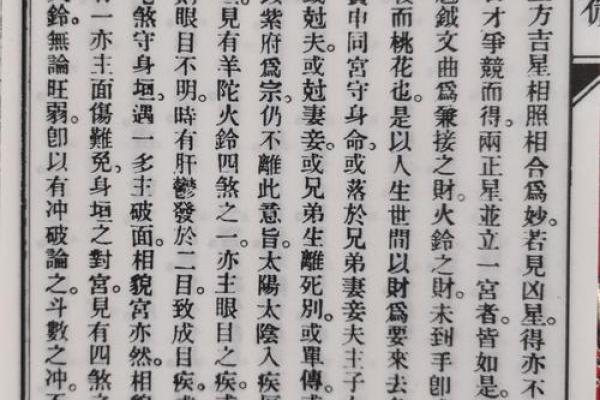 方吉星相照相合爲妙。若見凶星。得亦不
才爭競而得。兩正星並立一宮者。皆如是。
鉞文曲爲兼接之財。火鈴之財。未到手卽
後而桃花也。是以人生世間以財爲要來去
貪申同宮守身命。或落於兄弟妻妾夫主子
或尅夫。或尅妻妾。或兄弟生離死別。或單傳。
紫府爲宗。仍不離此意旨。太陽太陰入疾厄
見有羊陀火鈴四煞之一。亦主眼目之疾。
則眼目不明。時有肝鬱發於二目。致成目疾。
煞守身垣。遇一多主破面。相貌宮亦然。相貌
一亦主面傷難免。身垣之對宮。見有四煞之
鈴。無論旺弱。卽以有冲破論之。斗數之冲。